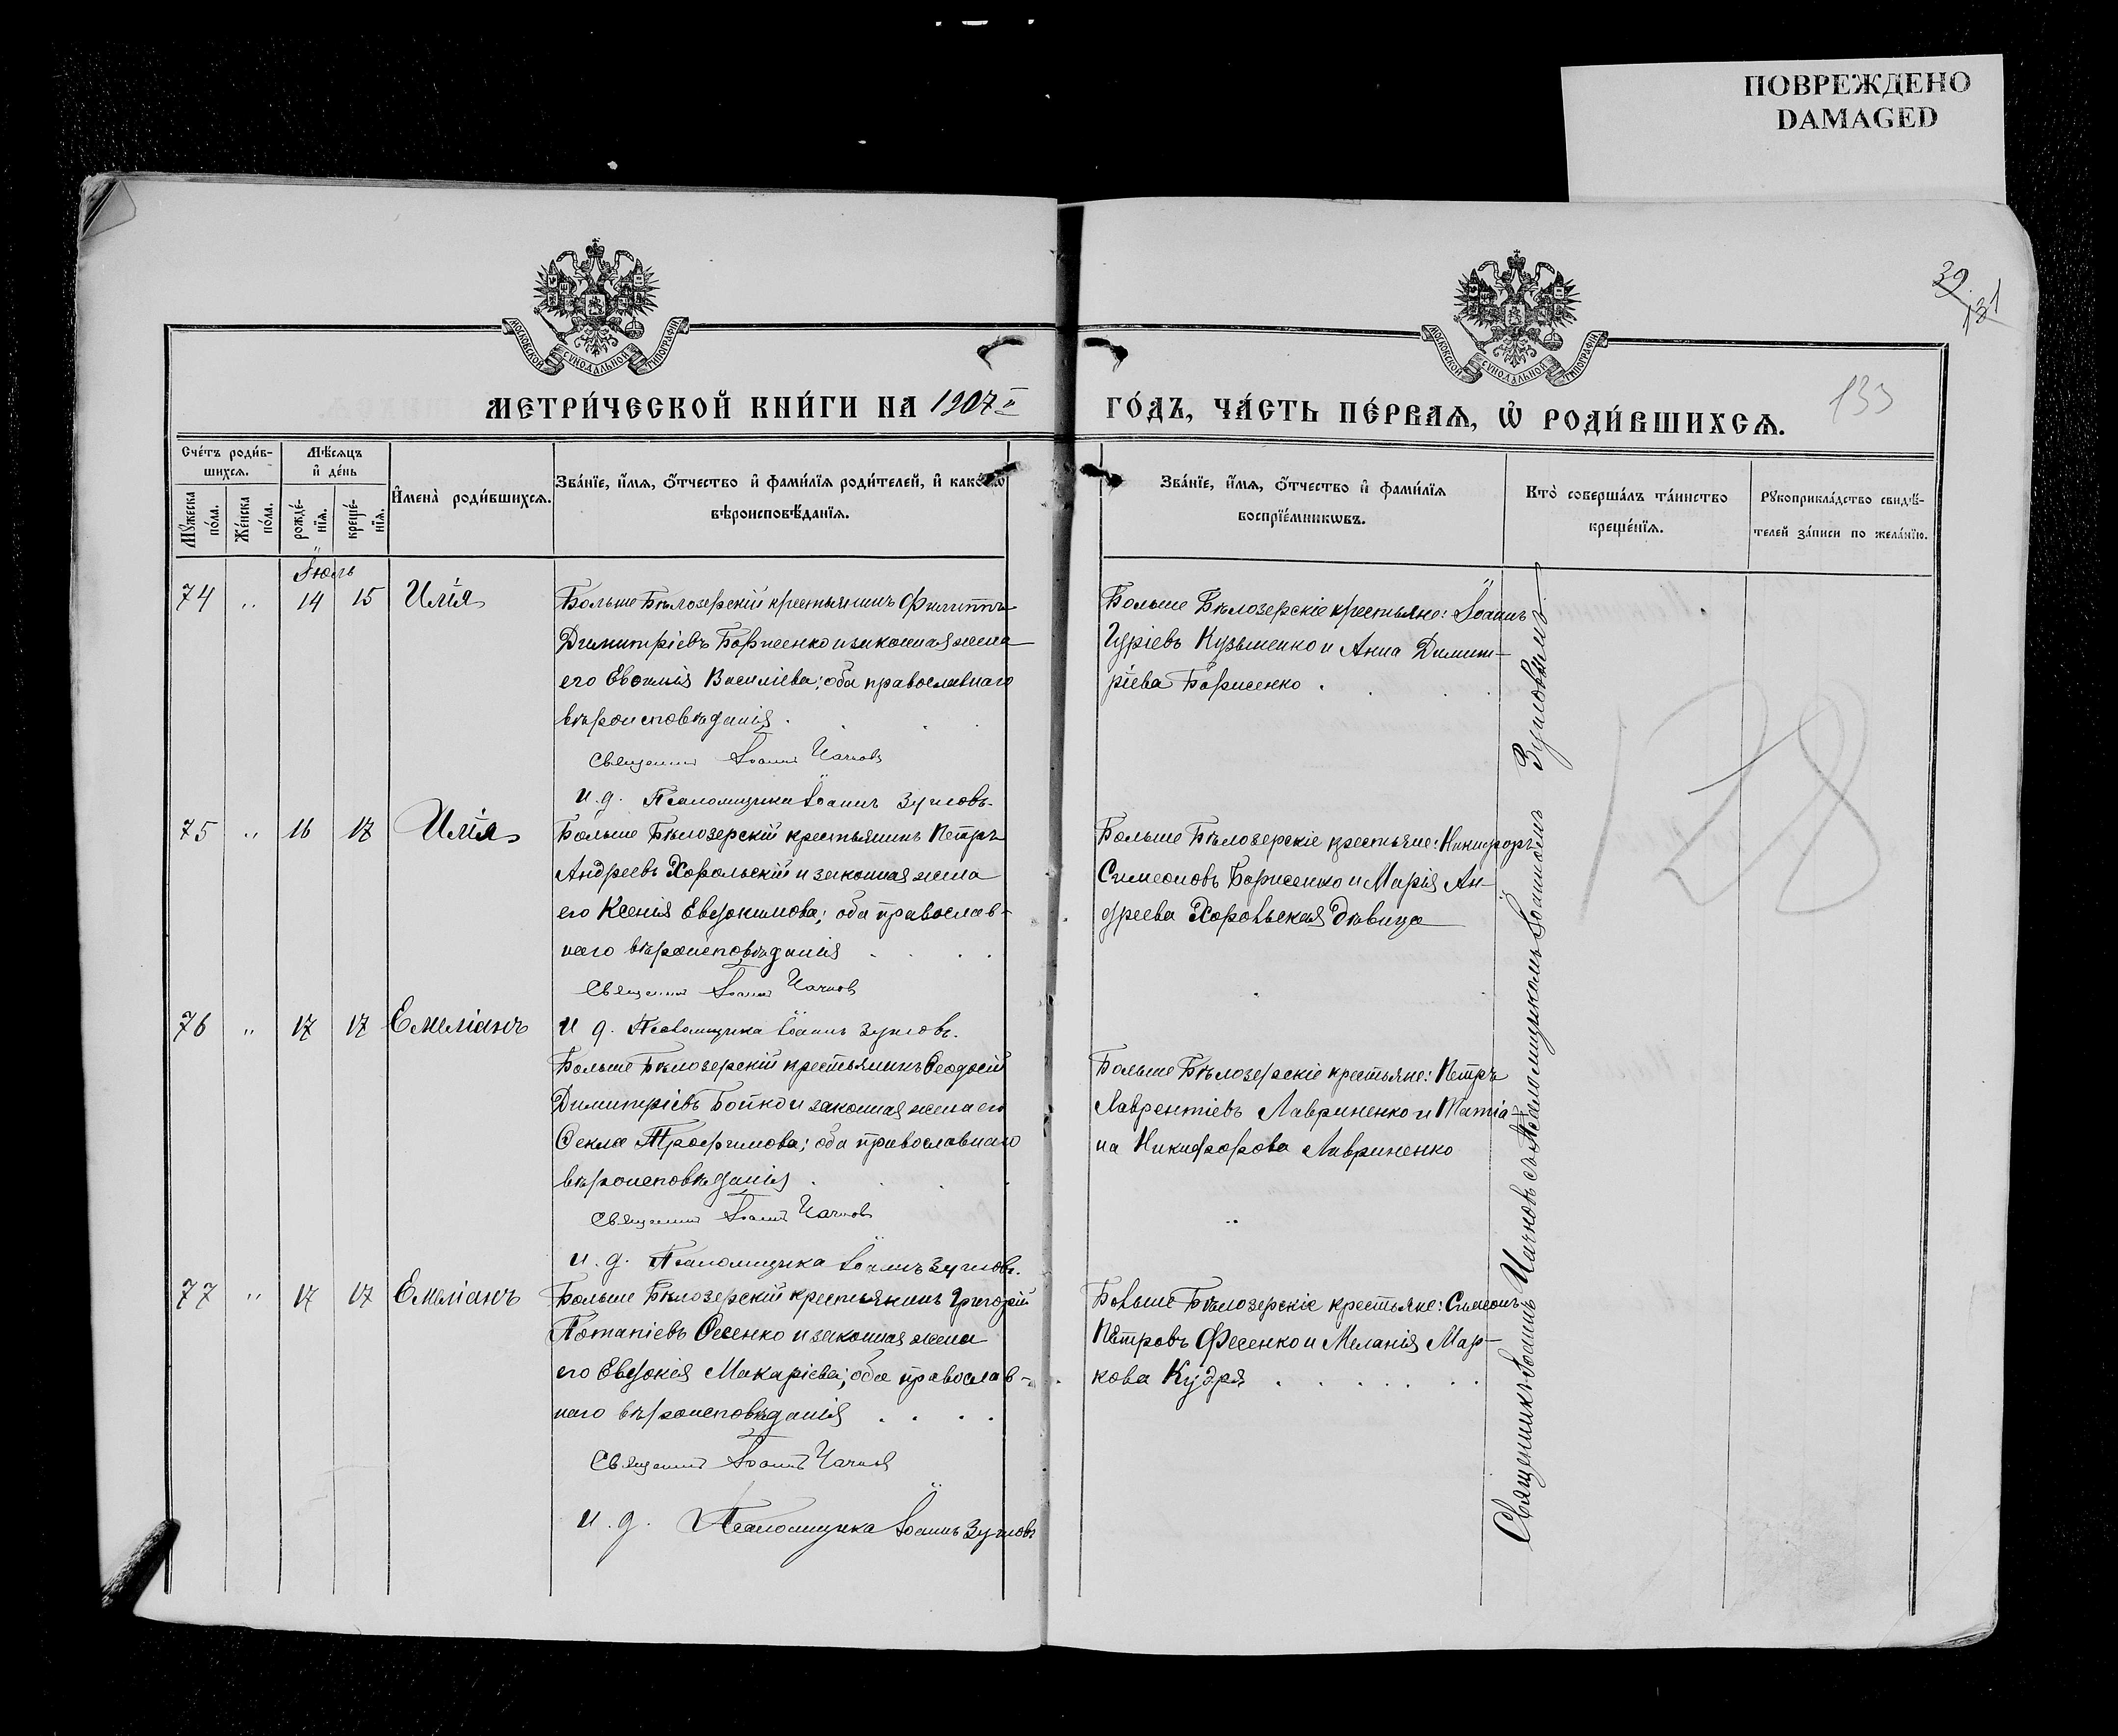 ПОВРЕЖДЕНО
DAMAGED
39
131
133
МОСКОВСКОЙ СѴНОДАЛЬНОЙ ТИПОГРАФІИ
МОСКОВСКОЙ СѴНОДАЛЬНОЙ ТИПОГРАФІИ
МЕТРИ́ЧЕСКОЙ КНИ́ГИ НА 1907й
ГО́ДЪ, ЧА́СТЬ ПЕ́РВАѦ, Ѡ҆ РОДИ́ВШИХСѦ.
Сче́тъ роди́в-
шихсѧ.
Мѣ́сѧцъ
и҆ де́нь
Мꙋ́жеска по́ла.
Же́нска по́ла.
рожде́-нїѧ.
креще́-нїѧ.
И҆мена̀ роди́вшихсѧ.
Зва́нїе, и҆́мѧ, ѻ҆́тчество и҆ фами́лїѧ роди́телей, и҆ како́гѡ
вѣроисповѣ́данїѧ.
Зва́нїе, и҆́мѧ, ѻ҆́тчество и҆ фами́лїѧ
воспрїе́мникѡвъ.
Кто̀ соверша́лъ та́инство
креще́нїѧ.
Рꙋкоприкла́дство свидѣ́-
телей за́писи по жела́нїю.
Іюль
74 " 14 15 Илія
Больше Бѣлозерскій крестьянинъ Филиппъ
Димитріевъ Борисенко и законная жена
его Евѳимія Василіева; оба православнаго
вѣроисповѣданія.
Священникъ Іоаннъ Чачковъ
И. д. Псаломщика Іоаннъ Зуиловъ.
Больше Бѣлозерскіе крестьяне: Іоаннъ
Гуріевъ Кузьменко и Анна Димит-
ріева Борисенко.
75 " 16 17 Илія
Больше Бѣлозерскій крестьянинъ Петръ
Андреевъ Хорольскій и законная жена
его Ксенія Евдокимова; оба православ-
наго вѣроисповѣданія
Священникъ Іоаннъ Чачковъ
И д. Псаломщика Іоаннъ Зуиловъ.
Больше Бѣлозерскіе крестьяне: Никифоръ
Симеоновъ Борисенко и Марія Ан-
дреева Хорольская дѣвица
76 " 17 17 Емеліанъ
Больше Бѣлозерскій крестьянинъ Ѳеодосій
Димитріевъ Бойко и законная жена его
Ѳекла Трофимова; оба православнаго
вѣроисповѣданія.
Священникъ Іоаннъ Чачковъ
И. д. Псаломщика Іоаннъ Зуиловъ.
Больше Бѣлозерскіе крестьяне: Петръ
Лаврентіевъ Лавриненко и Татіа-
на Никифорова Лавриненко
77 " 17 17 Емеліанъ
Больше Бѣлозерскій крестьянинъ Григорій
Потапіевъ Фесенко и законная жена
его Евдокія Макаріева; оба православ-
наго вѣроисповѣданія
Священникъ Іоаннъ Чачковъ
И. д. Псаломщика Іоаннъ Зуиловъ
Больше Бѣлозерскіе крестьяне: Симеонъ
Петровъ Фесенко и Меланія Мар-
кова Кудря
Священникъ Іоаннъ Чачковъ съ Псаломщикомъ Іоанномъ Зуиловымъ
128